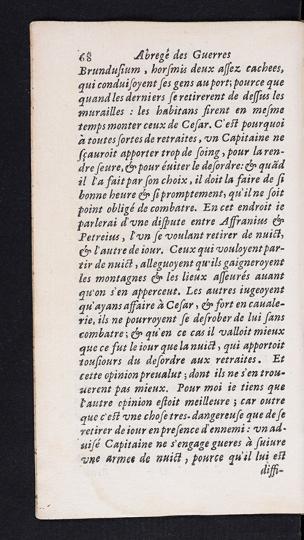 68 Abregé des Guerres
Brundusium, horsmis deux assez cachees,
qui conduisoyent ses gens au port; pource que
quand les derniers se retirerent de dessus les
murailles : les habitans firent en mesme
temps monter ceux de Cesar. C'est pourquoi
à toutes sortes de retraites, vn Capitaine ne
sçauroit apporter trop de soing, pour la ren-
dre seure, & pour éuiter le desordre: & quãd
il l'a fait par son choix, il doit la faire de si
bonne heure & si promptement, qu'il ne soit
point obligé de combatre. En cet endroit ie
parlerai d'vne dispute entre Affranius &
Petreius, l'vn se voulant retirer de nuict,
& l'autre de iour. Ceux qui vouloyent par-
tir de nuict, alleguoyent qu'ils gaigneroyent
les montagnes & les lieux asseurés auant
qu'on s'en apperceut. Les autres iugeoyent
qu'ayans affaire à Cesar, & fort en cauale-
rie, ils ne pourroyent se desrober de lui sans
combatre; & qu'en ce cas il valloit mieux
que ce fut le iour que la nuict, qui apportoit
tousiours du desordre aux retraites. Et
cette opinion preualut; dont ils ne s'en trou-
uerent pas mieux. Pour moi ie tiens que
l'autre opinion estoit meilleure; car outre
que c'est vne chose tres-dangereuse que de se
retirer de iour en presence d'ennemi : vn ad-
uisé Capitaine ne s'engage gueres à suiure
vne armee de nuict, pource qu'il lui est
diffi-